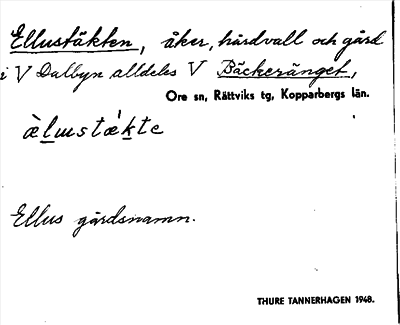 Ellustäkten, åker, hårdvall och gård
i V Dalbyn alldeles V Bäckeränget,
Ore sn, Rättviks tg, Kopparbergs län.
æ̀lustǽkte
Ellus gårdsnamn.
THURE TANNERHAGEN 1948.